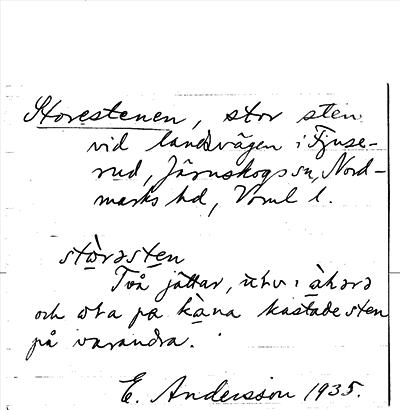 Storestenen, stor sten
vid landsvägen i Fjuse-
rud, Järnskogs sn, Nord-
marks hd, Vrml l.
stòrəstèn
Två jättar, i àkərə
och på kàna kastade sten
på varandra.
E. Andersson 1935.